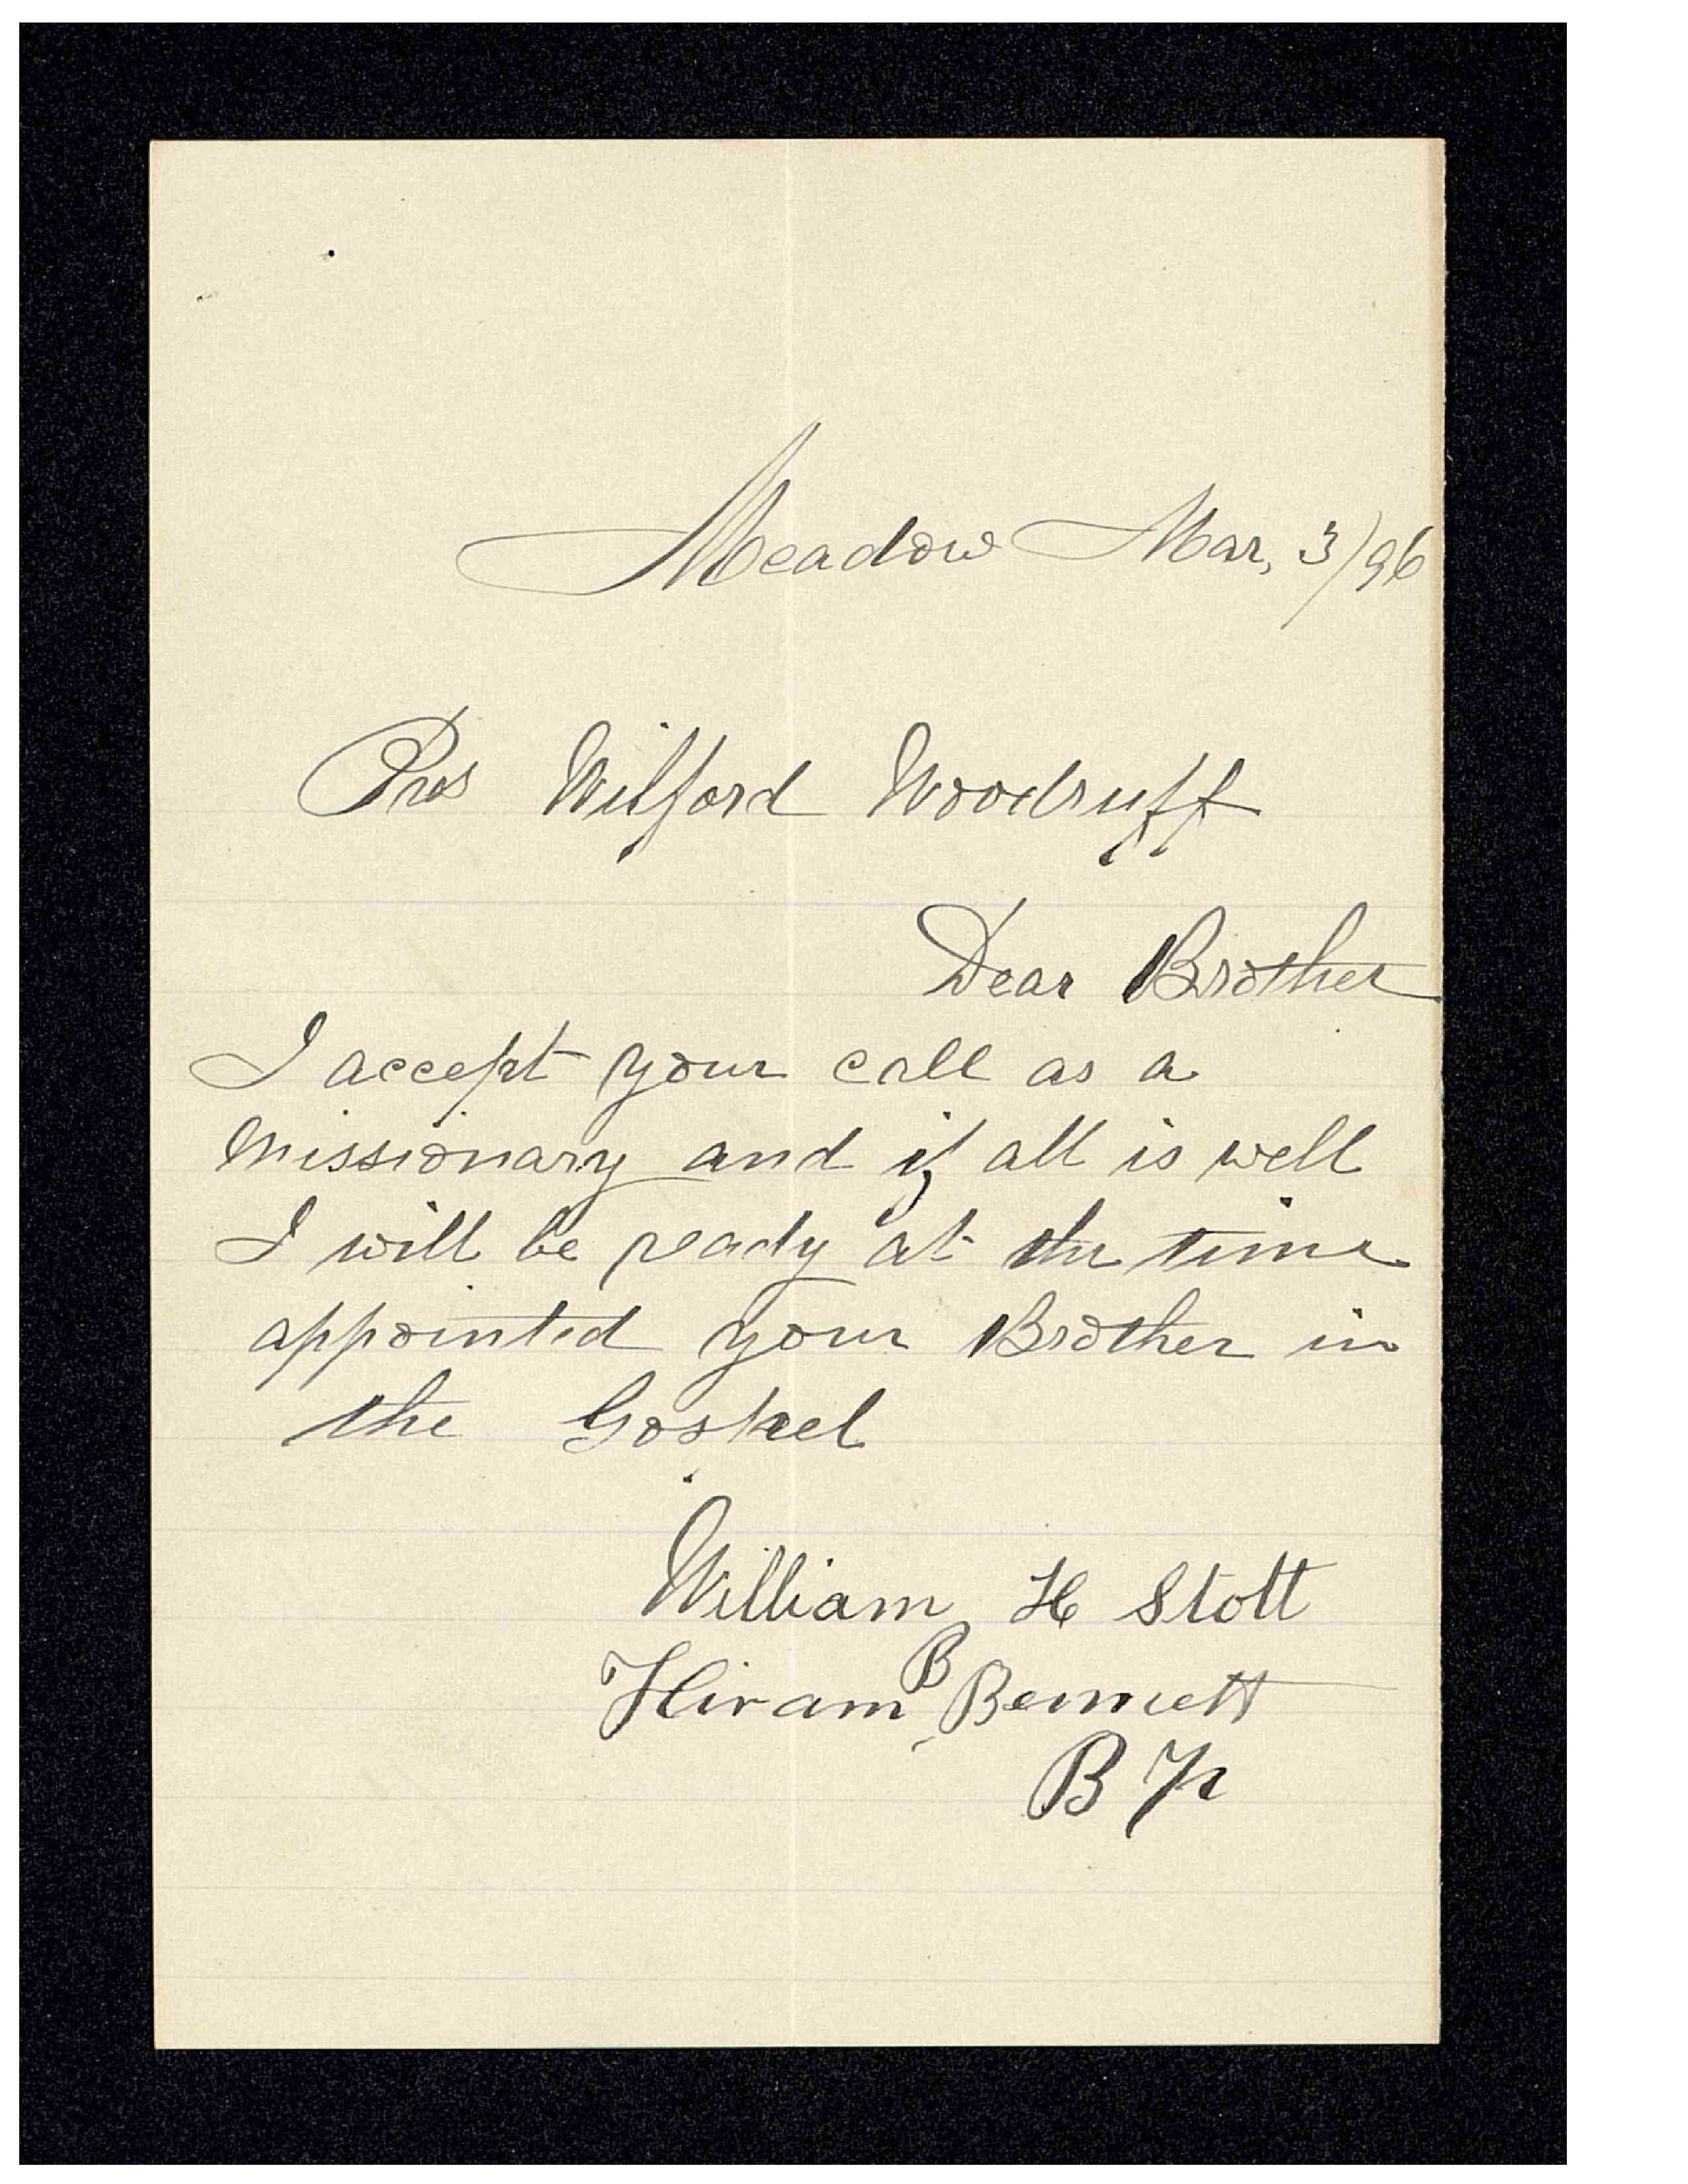 Meadow Mar, 3/96
Pres Wilford Woodruff
Dear Brother
I accept your call as a
missionary and if all is well
I will be ready at the time
appointed your Brother in
the Gospel
William H Stott
Hiram B Bennett
B